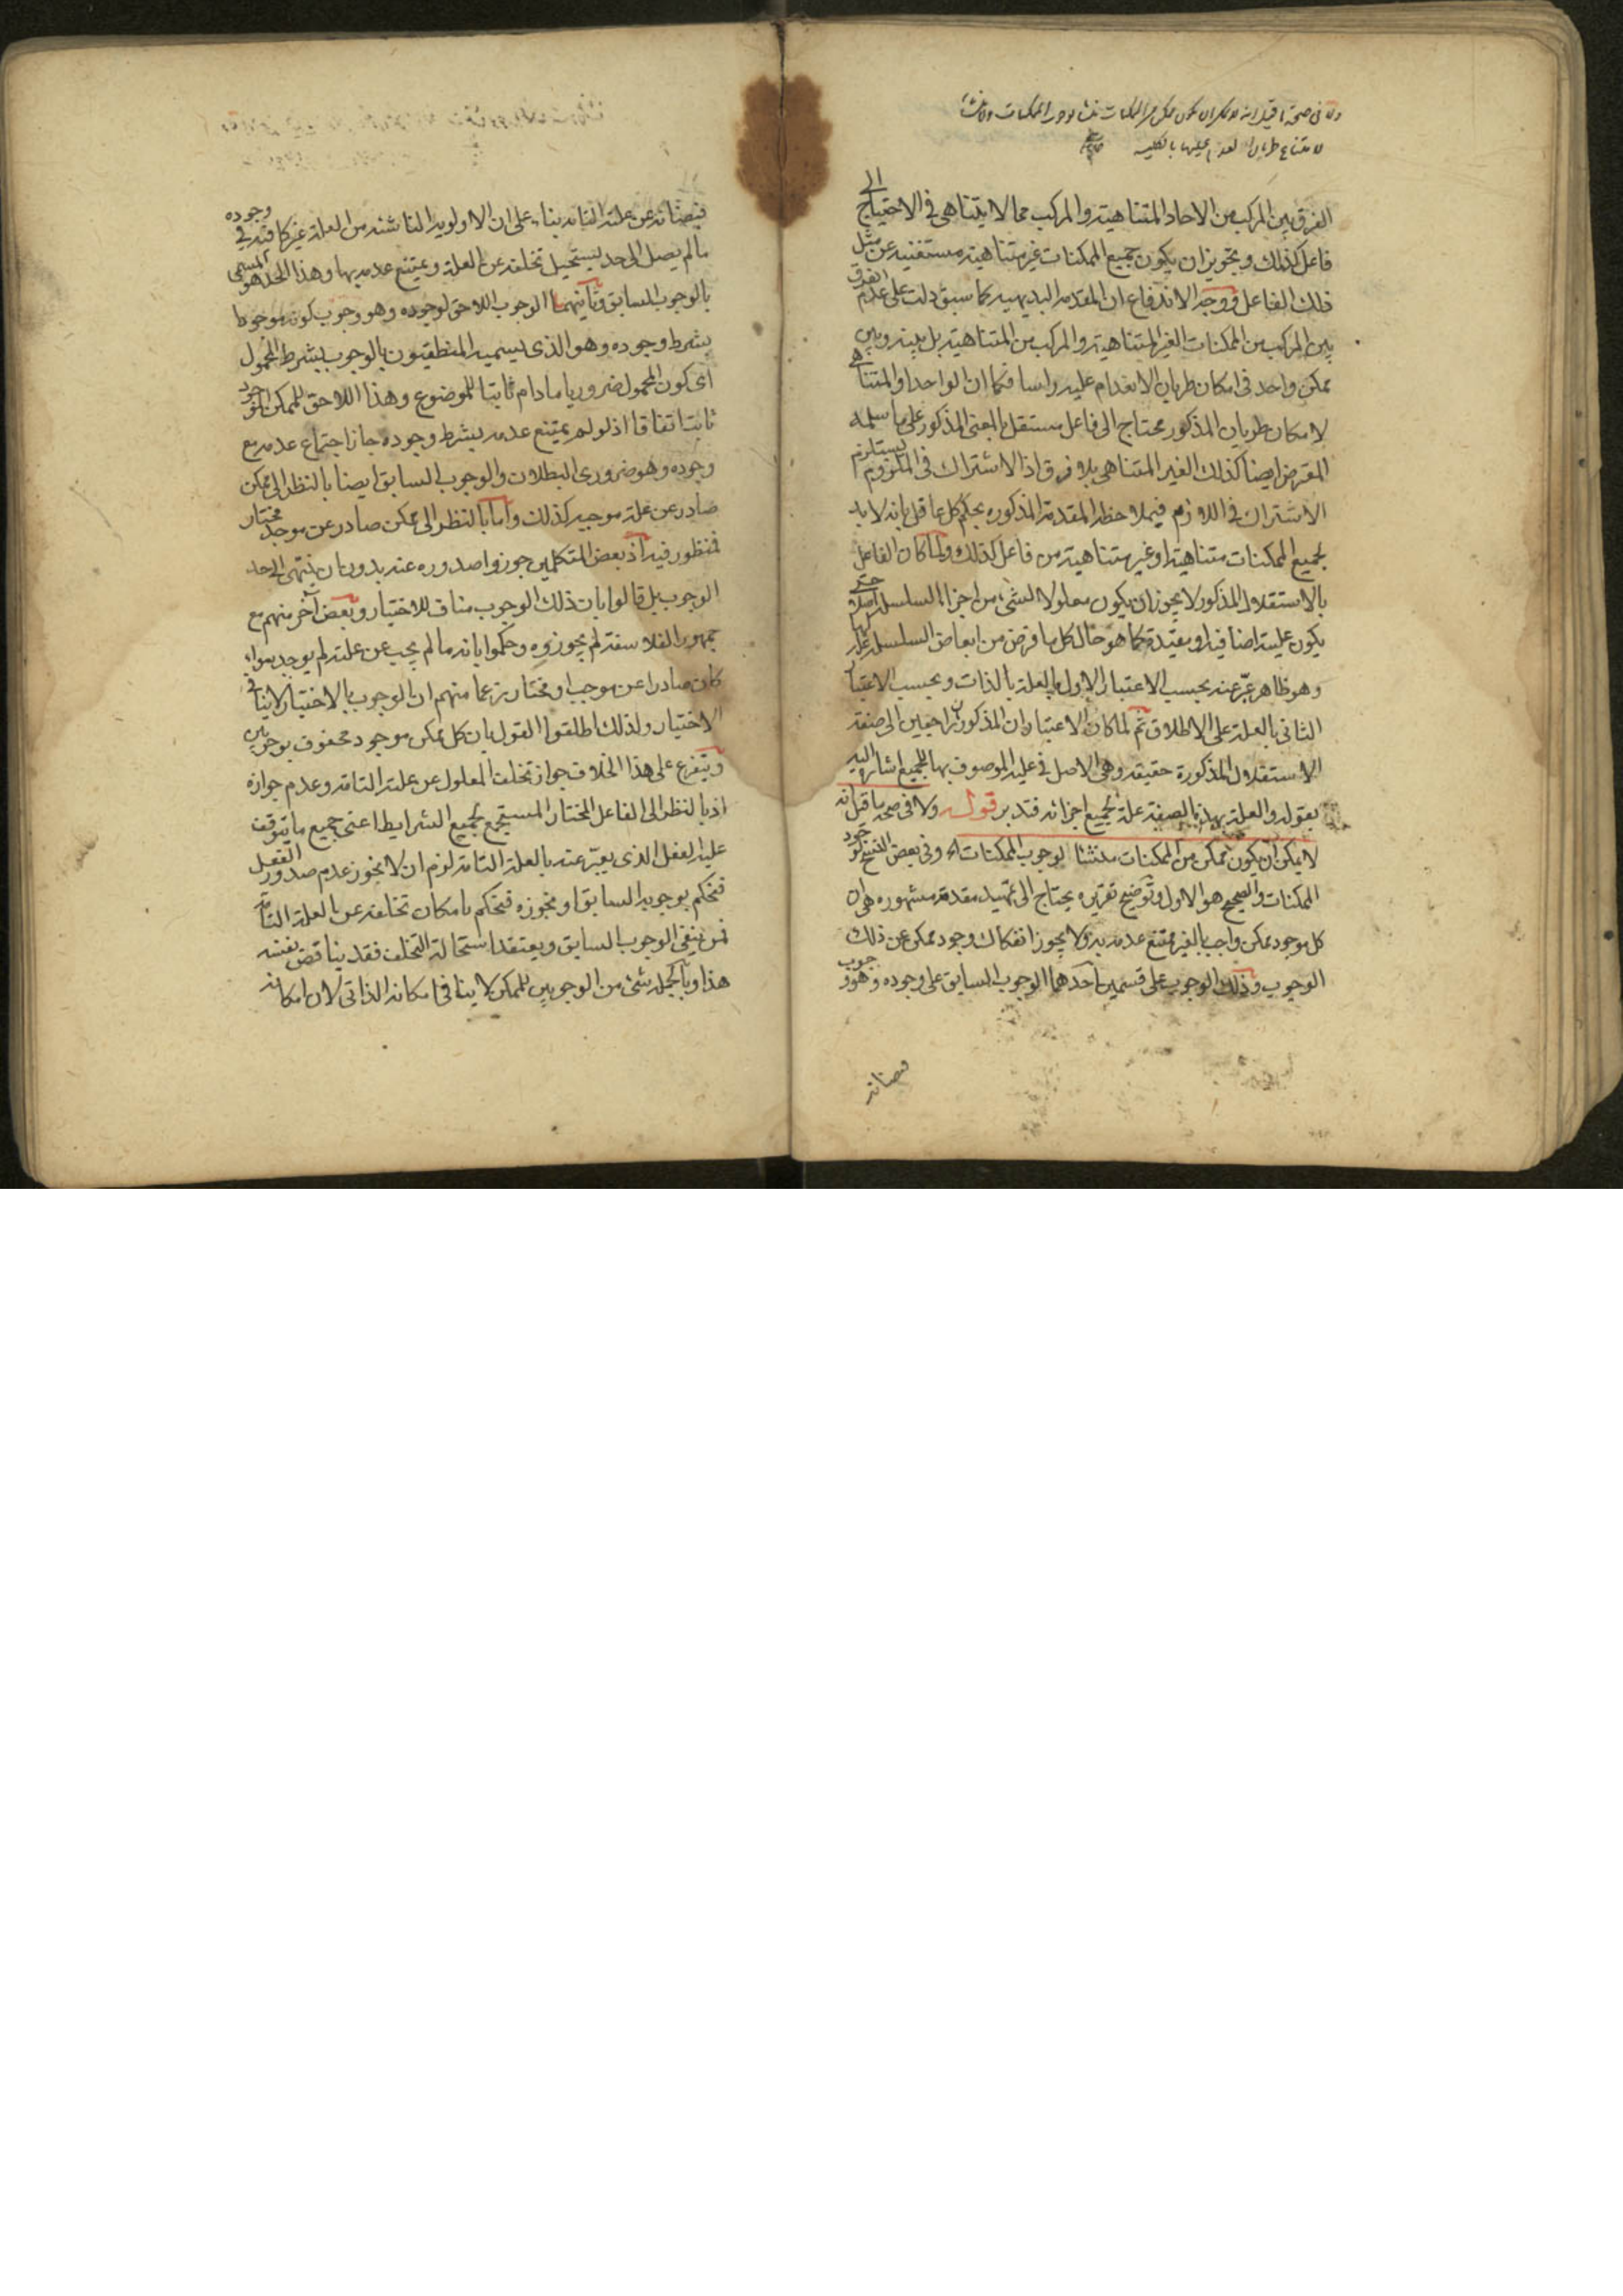 ولا فى صحة ما قيل انه لا يمكن ان يكون ممكن من الممكنات منشا لوجوب الممكنات ولا منشا
لامتناع طريان العدم عليها بالكلية
الفرق بين المركب من الاحاد المتناهية والمركب مما لا يتناهى فى الاحتياج الى
فاعل كذلك وتجويز ان يكون جميع الممكنات غير متناهية مستغنية عن مثل
ذلك الفاعل ووجه الاندفاع ان المقدمة البديهية كما سبق دلت على عدم الفرق
بين المركب من الممكنات الغير المتناهية والمركب من المتناهية بل بينه وبين
ممكن واحد فى امكان طريان الانعدام عليه راسا فكما ان الواحد او المتناهى
لامكان طريان المذكور محتاج الى فاعل مستقل بالمعنى المذكور على ما سلمه
المعترض ايضا كذلك الغير المتناهى بلا فرق اذ الاشتراك فى الملزوم يستلزم
الاشتراك فى اللازم فبملاحظة المقدمة المذكورة يحكم كل عاقل بانه لا بد
لجميع الممكنات متناهية او غير متناهية من فاعل كذلك ولما كان الفاعل
بالاستقلال المذكور لا يجوز ان يكون معلولا لشئ من اجزاء السلسلة اصلا حتى
يكون علية اضافية او مقيدة كما هو حال كل ما فرض من ابعاض السلسلة علة لها
وهو ظاهر عبّر عنه بحسب الاعتبار الاول بالعلة بالذات وبحسب الاعتبار
الثانى بالعلة على الاطلاق ثم لما كان الاعتباران المذكوران راجعين الى صفة
الاستقلال المذكورة حقيقة وهى الاصل فى علية الموصوف بها للجميع اشار اليه
بقوله والعلة بهذه الصفة علة لجميع اجزائه فتدبر قوله ولا فى صحة ما قيل انه
لا يمكن ان يكون ممكن من الممكنات منشئا لوجوب الممكنات اه وفى بعض النسخ لوجود
الممكنات والصحيح هو الاول وتوضيح تقريره يحتاج الى تمهيد مقدمة مشهورة هى ان
كل موجود ممكن واجب بالغير ممتنع عدمه به ولا يجوز انفكاك وجود ممكن عن ذلك
الوجوب وذلك الوجوب على قسمين احدهما الوجوب السابق على وجوده وهو وجوب
فيضانه
فيضانه عن علته التامة بناء على ان الاولوية الناشئة من العلة غير كافية فى وجوده
ما لم يصل الى حد يستحيل تخلفه عن العلة ويمتنع عدمه بها وهذا الحد هو المسمى
بالوجوب السابق وثانيهما الوجوب اللاحق لوجوده وهو وجوب كونه موجودا
بشرط وجوده وهو الذى يسميه المنطقيون بالوجوب بشرط المحمول
اى كون المحمول ضروريا ما دام ثابتا للموضوع وهذا اللاحق للممكن الموجود
ثابت اتفاقا اذ لو لم يمتنع عدمه بشرط وجوده جاز اجتماع عدمه مع
وجوده وهو ضرورى البطلان والوجوب السابق ايضا بالنظر الى ممكن
صادر عن علة موجبة كذلك واما بالنظر الى ممكن صادر عن موجد مختار
فمنظور فيه اذ بعض المتكلمين جوزوا صدوره عنه بدون ان ينتهى الى حد
الوجوب بل قالوا بان ذلك الوجوب مناف للاختيار وبعض آخر منهم مع
جمهور الفلاسفة لم يجوزوه وحكموا بانه ما لم يجب عن علته لم يوجد سواء
كان صادرا عن موجب او مختار زعما منهم ان الوجوب بالاختيار لا ينافى
الاختيار ولذلك اطلقوا القول بان كل ممكن موجود محفوف بوجوبين
ويتفرع على هذا الخلاف جواز تخلف المعلول عن علته التامة وعدم جوازه
اذ بالنظر الى الفاعل المختار المستجمع لجميع الشرايط اعنى جميع ما يتوقف
عليه الفعل الذى يعبّر عنه بالعلة التامة لزم ان لا يجوز عدم صدور الفعل
فنحكم بوجوبه السابق او نجوزه فنحكم بامكان تخلفه عن العلة التامة
فمن ينفى الوجوب السابق ويعتقد استحالة التخلف فقد يناقض نفسه
هذا وبالجملة شئ من الوجوبين للممكن لا ينافى امكانه الذاتى لان امكانه